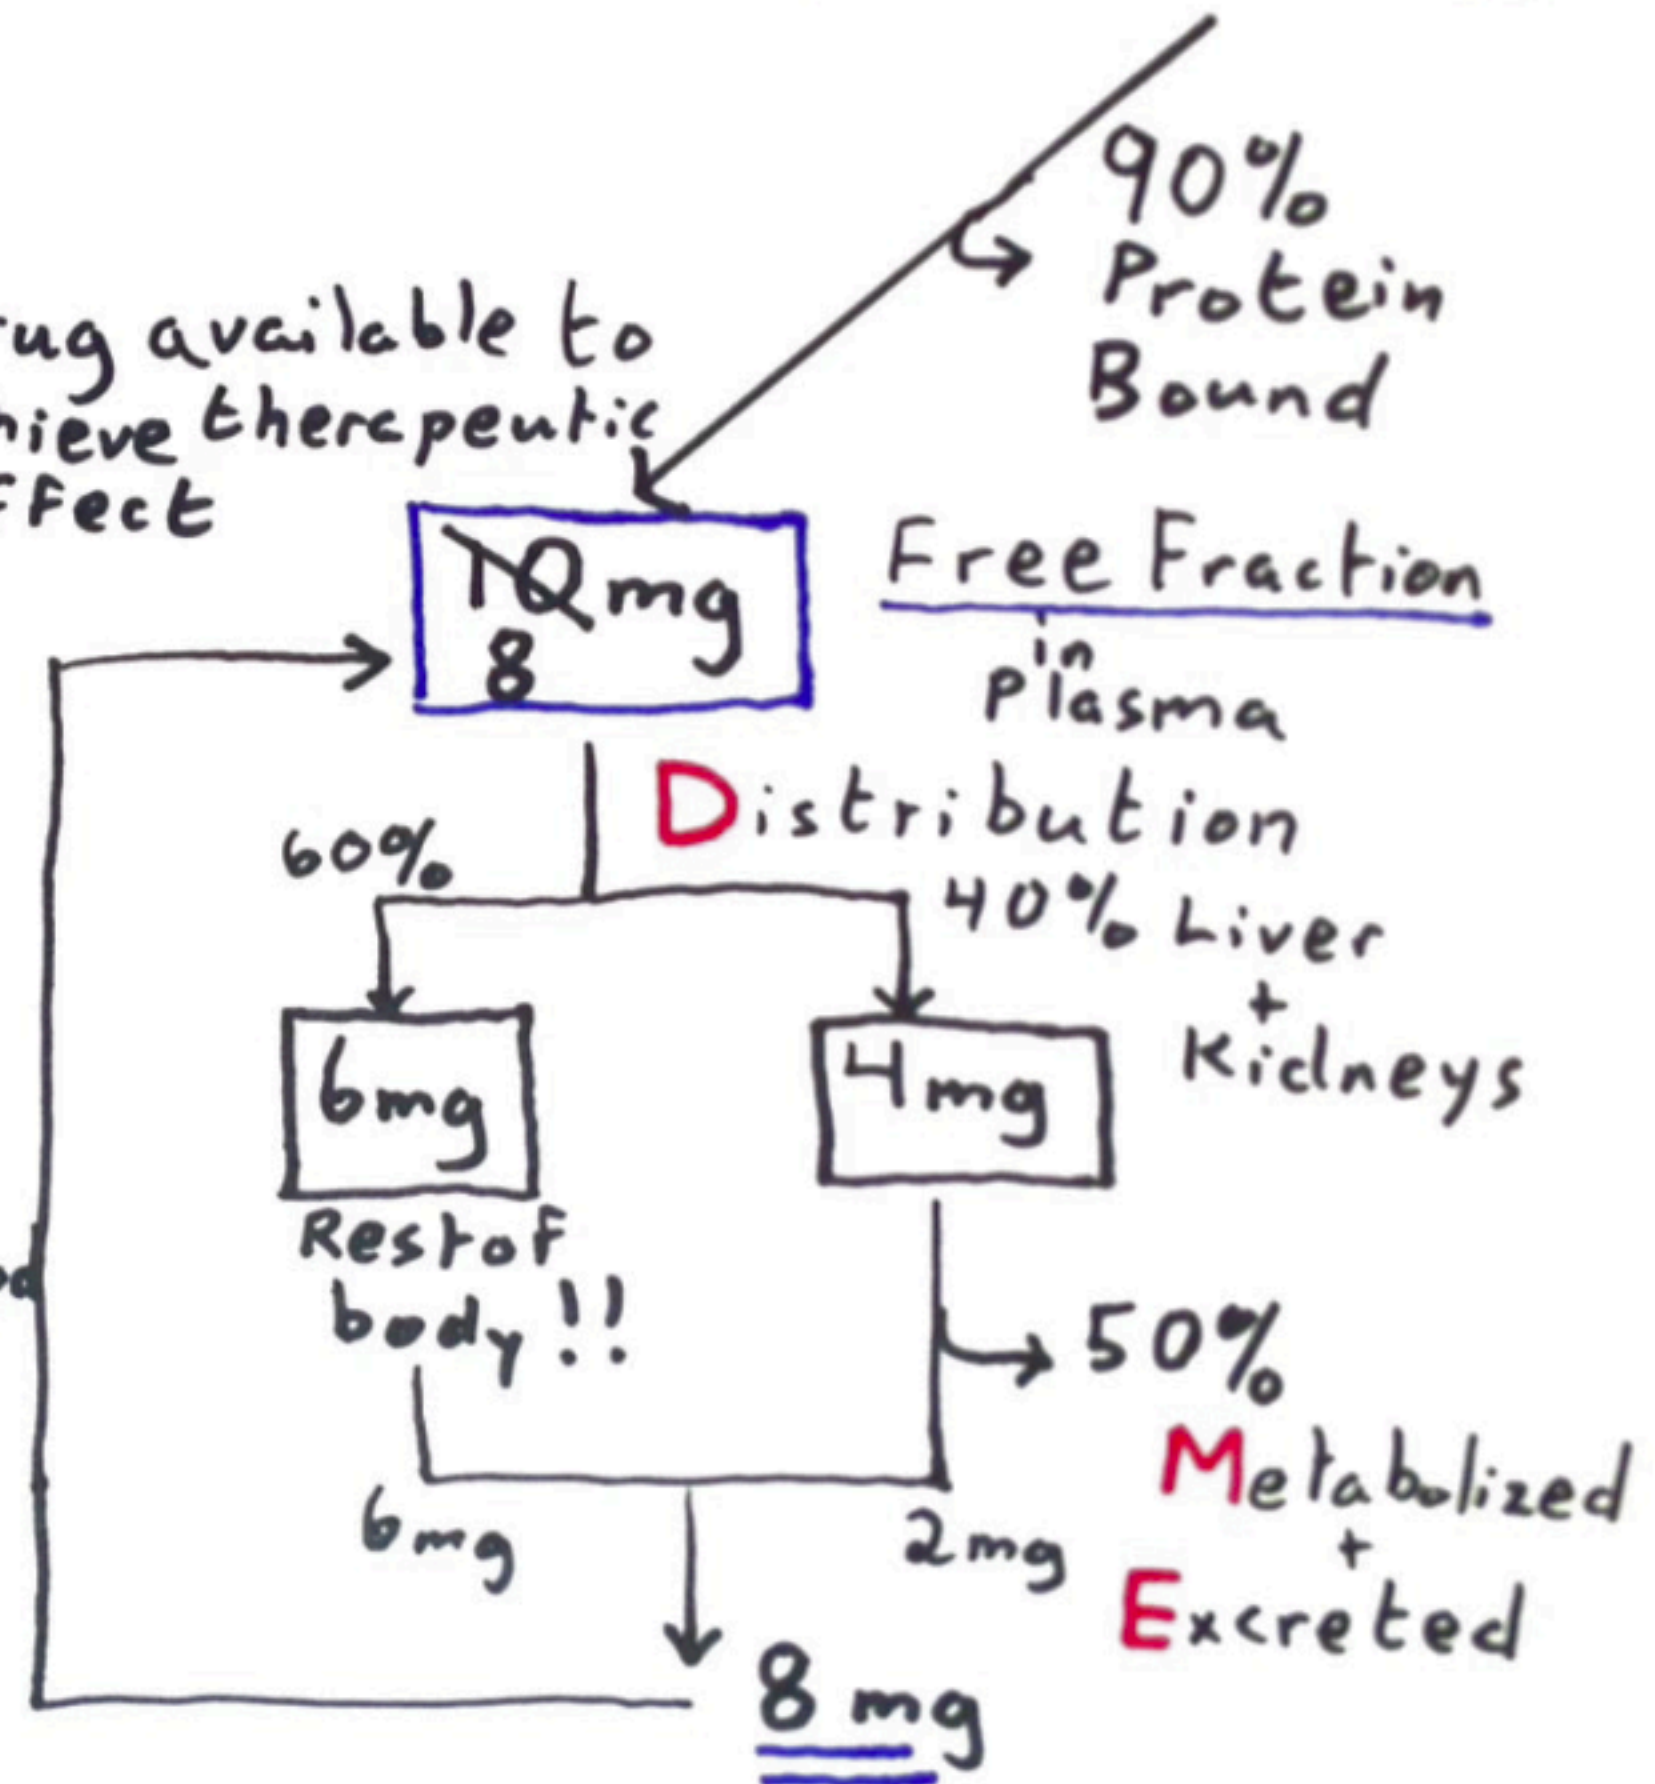 90%
Protein
Bound
ug available to
hieve therapeutic
ffect
10 mg
8
Free Fraction
in
Plasma
Distribution
60%
40% Liver
+
Kidneys
6mg
4mg
Rest of
body!!
50%
Metabolized
+
Excreted
6mg
2mg
8 mg